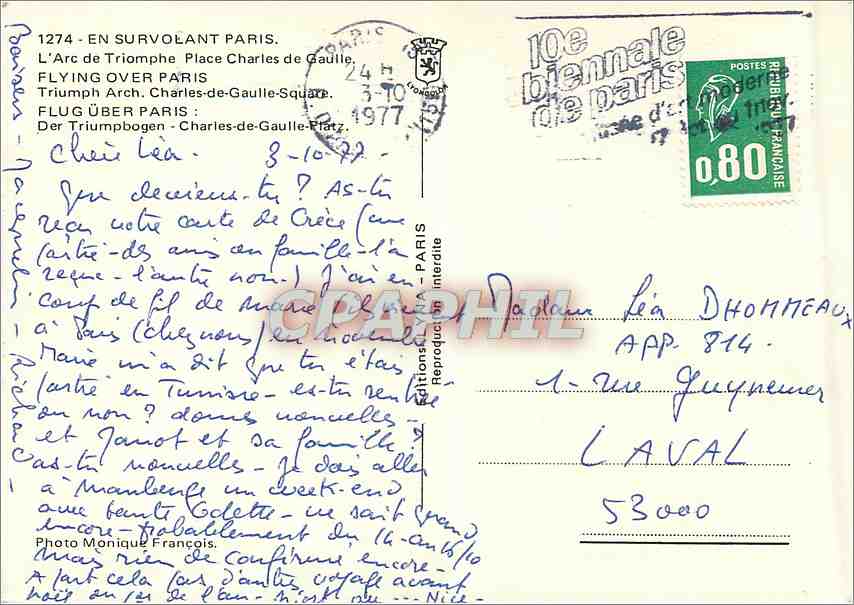 1274 - EN SURVOLANT PARIS.
L'Arc de Triomphe Place Charles de Gaulle.
FLYING OVER PARIS
Triumph Arch. Charles-de-Gaulle-Square.
FLUG ÜBER PARIS :
Der Triumpbogen - Charles-de-Gaulle-Platz.
PARIS
24 H
3-10
1977
LYONCOLOR
10e
biennale
de paris
musée d'art moderne
POSTES
REPUBLIQUE FRANÇAISE
0,80
Chère Léa. 3-10-77
Que deviens-tu ? As-tu
reçu notre carte de Grèce (une
partie - des amis en famille - l'a
reçue - l'autre non -) J'ai eu
coup de fil de Marie
à Paris (chez nous) en novembre
Marie m'a dit que tu étais
partie en Tunisie - es-tu rentrée
ou non ? donnes nouvelles -
et Janot et sa famille ?
as-tu nouvelles - Je dois aller
à Maubeuge un week-end
avec tante Odette - ne sait quand
encore - probablement du 14 au 16/10
mais rien de confirmé encore -
A part cela pas d'autres voyage avant
noël ou 1er de l'an - n'est pu --- Nice -
Baisers - Jacqueline -
Editions LYNA - PARIS
Reproduction interdite
Photo Monique François.
CPAPHIL
Madame Léa DHOMMEAUX
APP. 814 -
1 - rue Guynemer
LAVAL
53000